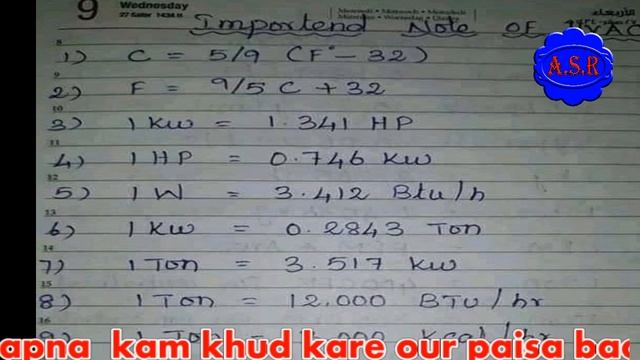 9 Wednesday
27 Safar 1434 H
الأربعاء
Importend Note OF
A.S.R
1) C = 5/9 (F° - 32)
2) F = 9/5 C + 32
3) 1 KW = 1.341 HP
4) 1 HP = 0.746 KW
5) 1 W = 3.412 Btu/h
6) 1 KW = 0.2843 Ton
7) 1 Ton = 3.517 KW
8) 1 Ton = 12.000 BTU/hr
9) 1 Ton = Kcal/hr
apna kam khud kare our paisa bac